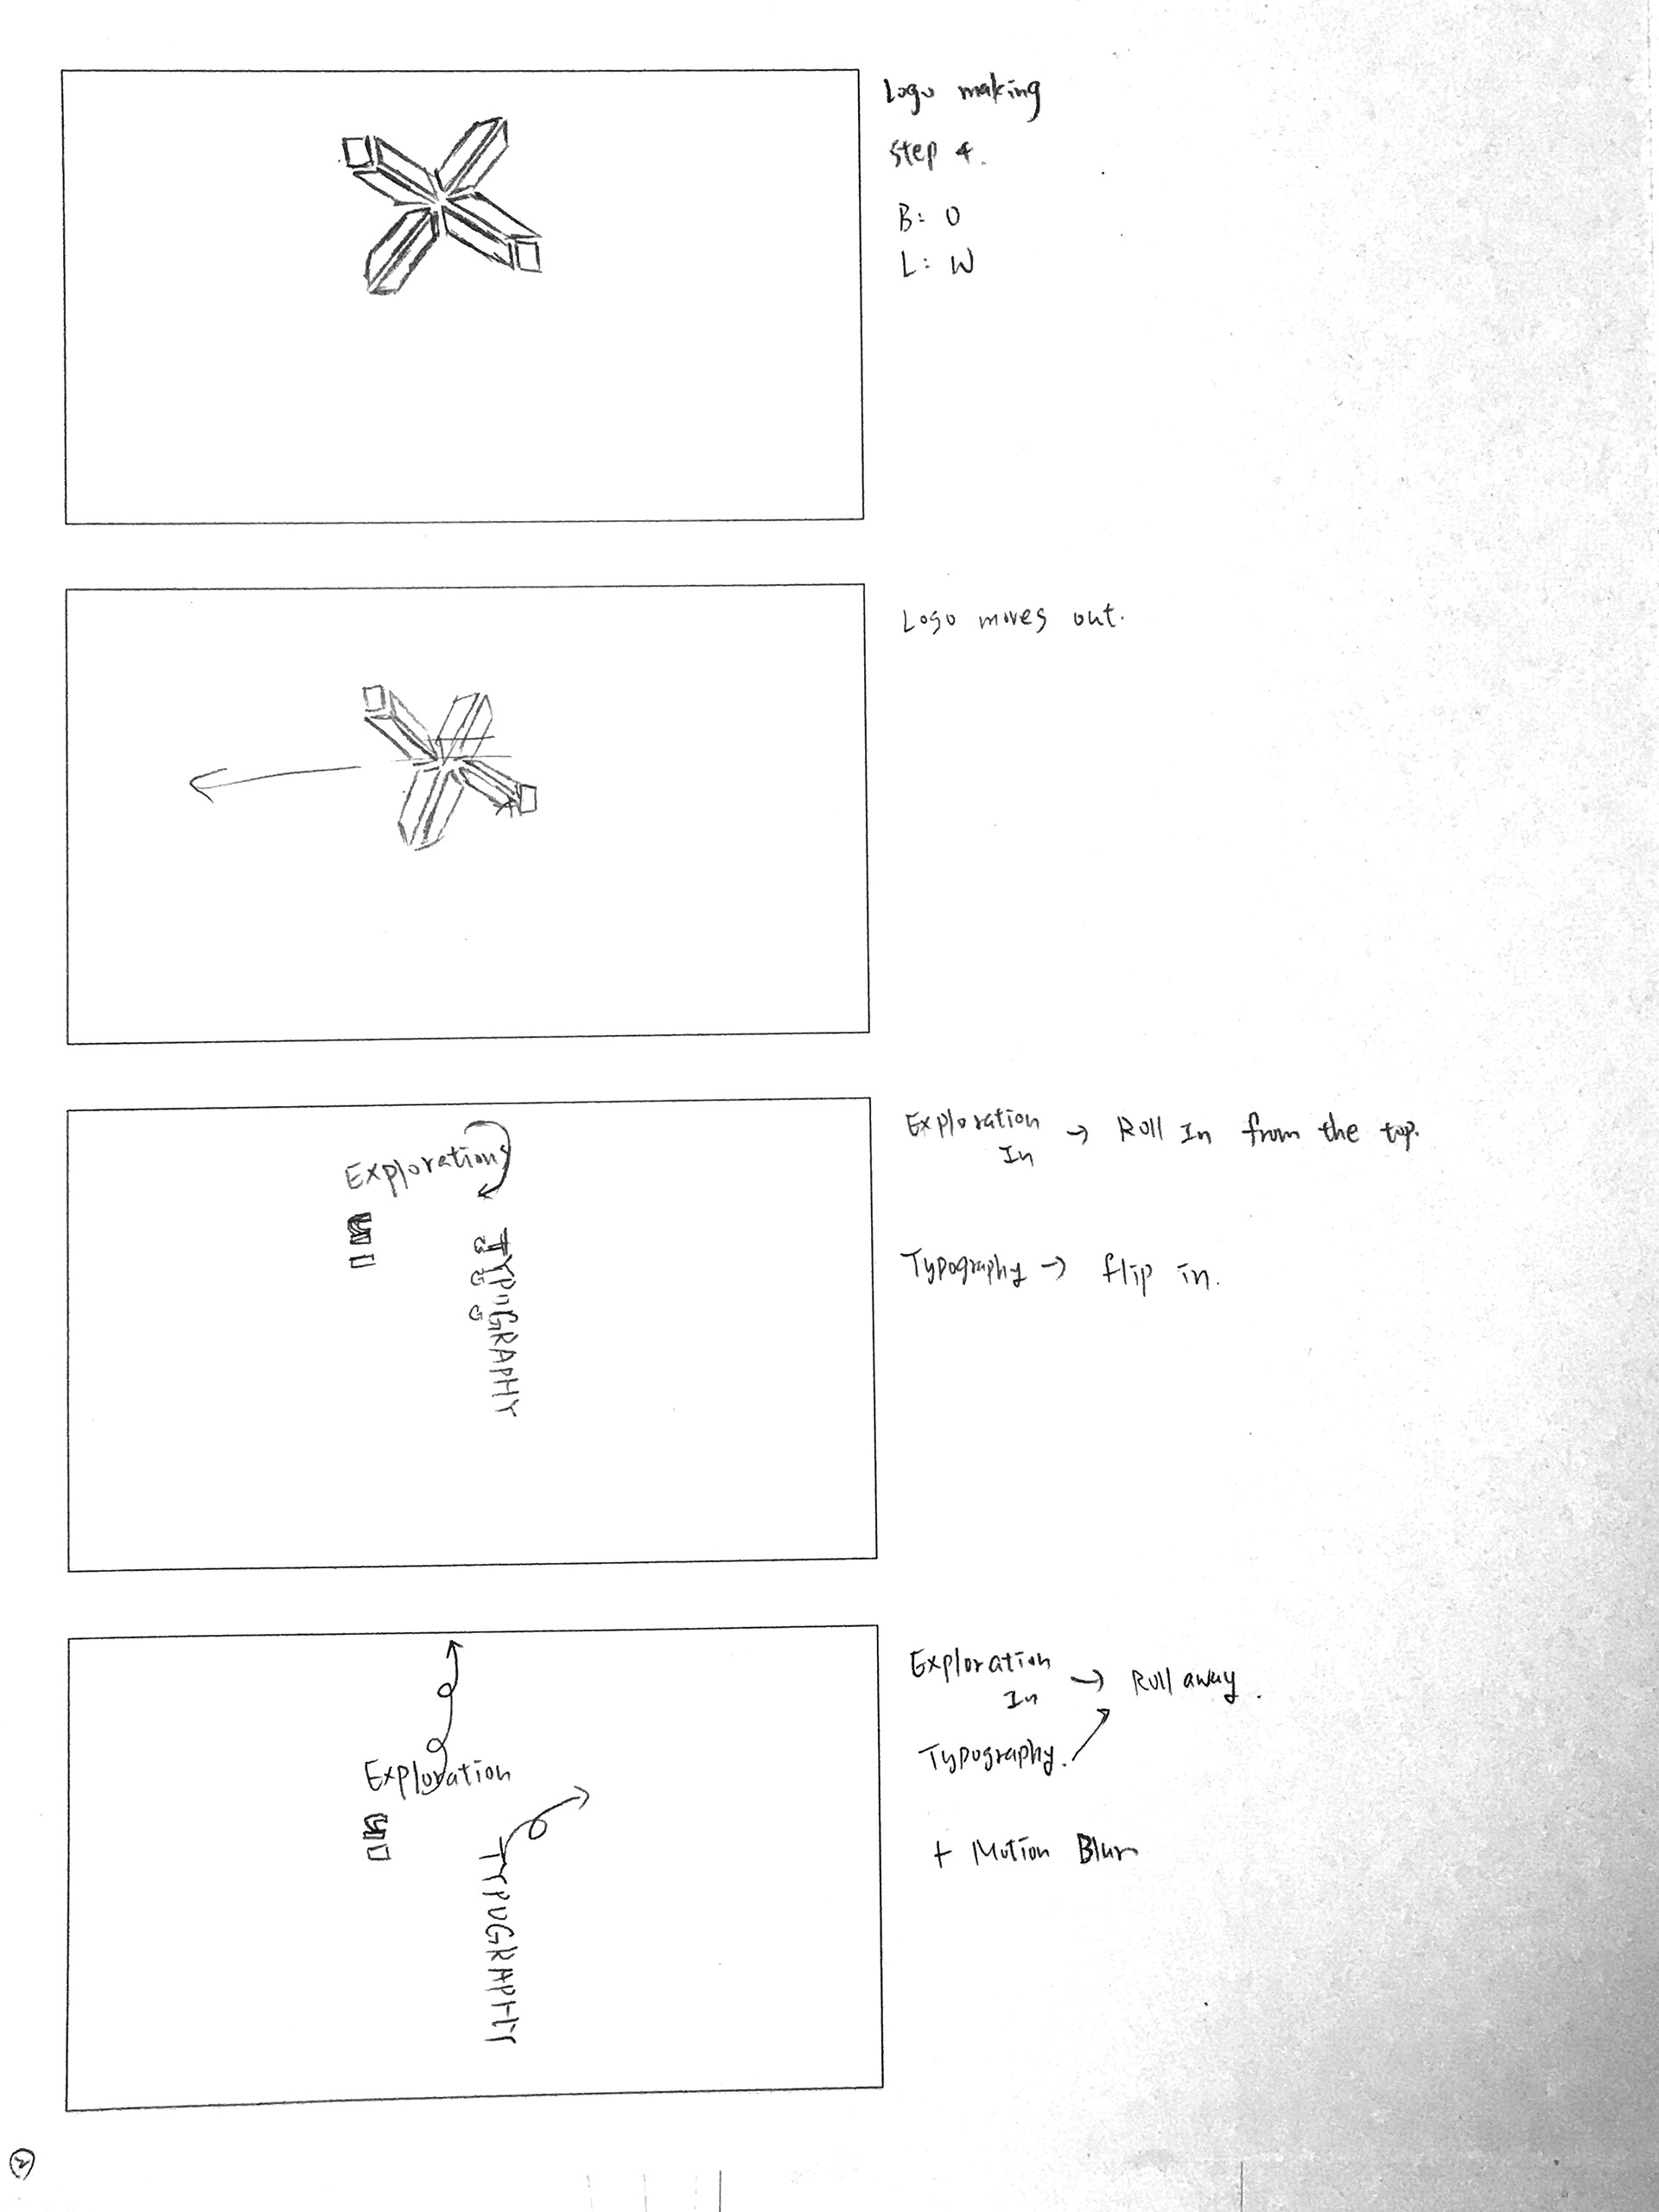 Logo making
Step 4.
B: O
L: W
Logo moves out.
Exploration
TYPOGRAPHY
Exploration → Roll In from the top.
In
Typography → flip in.
Exploration
TYPOGRAPHY
Exploration → Roll away.
In
Typography.
+ Motion Blur
2